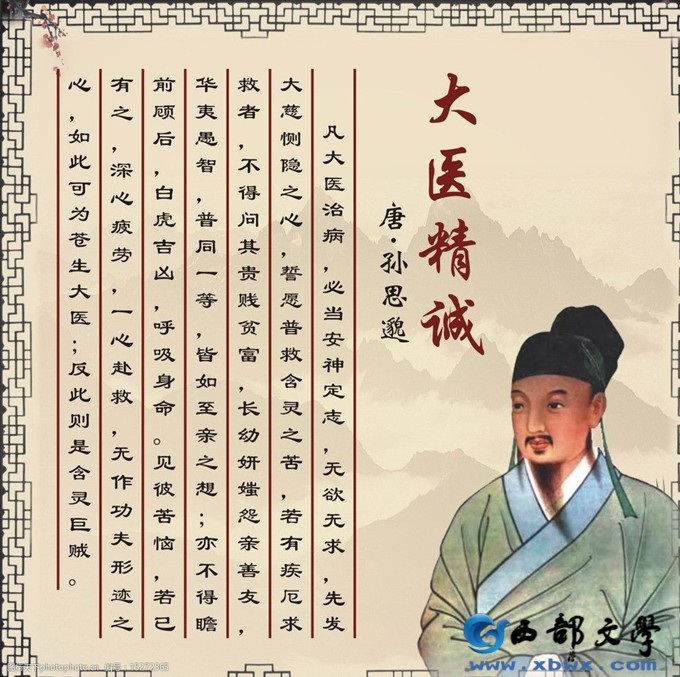 大医精诚
唐·孙思邈
凡大医治病，必当安神定志，无欲无求，先发
大慈恻隐之心，誓愿普救含灵之苦，若有疾厄求
救者，不得问其贵贱贫富，长幼妍媸怨亲善友，
华夷愚智，普同一等，皆如至亲之想；亦不得瞻
前顾后，白虎吉凶，呼吸身命。见彼苦恼，若已
有之，深心疲劳，一心赴救，无作功夫形迹之
心，如此可为苍生大医；反此则是含灵巨贼。
西部文學
www.xbwx.com